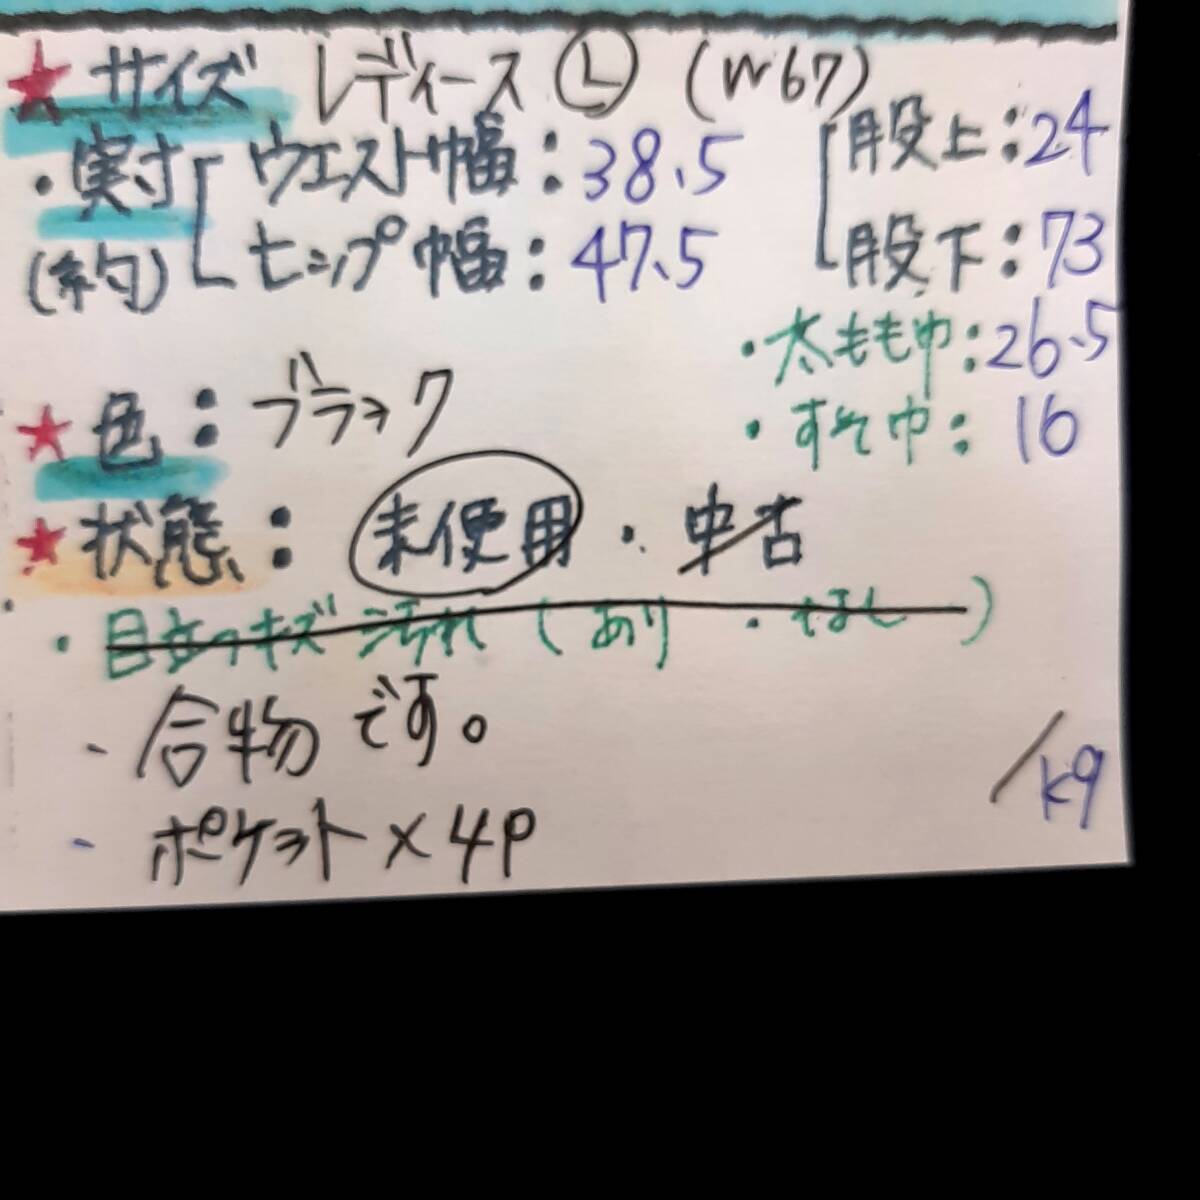 ★サイズ レディースⓁ (W67)
・実寸(約) ウエスト幅:38.5
ヒップ幅:47.5
股上:24
股下:73
・太もも巾:26.5
・すそ巾:16
★色:ブラック
★状態:未使用・中古
・目立つキズ汚れ(あり・なし)
- 合物です。
- ポケット×4P
/K9